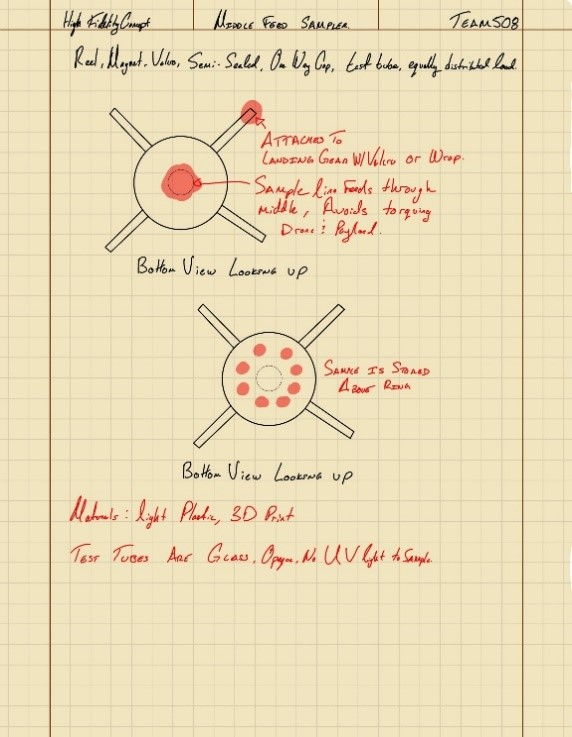 High Fidelity Concept MIDDLE FEED SAMPLER TEAM 508
Reel, Magnet-Valve, Semi-Sealed, One Way Cap, test tubes, equally distributed load
ATTACHED TO
LANDING GEAR W/ Velcro or Wrap.
Sample line Feeds through
middle, Avoids torquing
Drone & Payload.
Bottom View Looking up
SAMPLE IS STORED
ABOVE RING
Bottom View Looking up
Materials: light Plastic, 3D Print
TEST TUBES ARE GLASS, Opaque, No UV light to Sample.